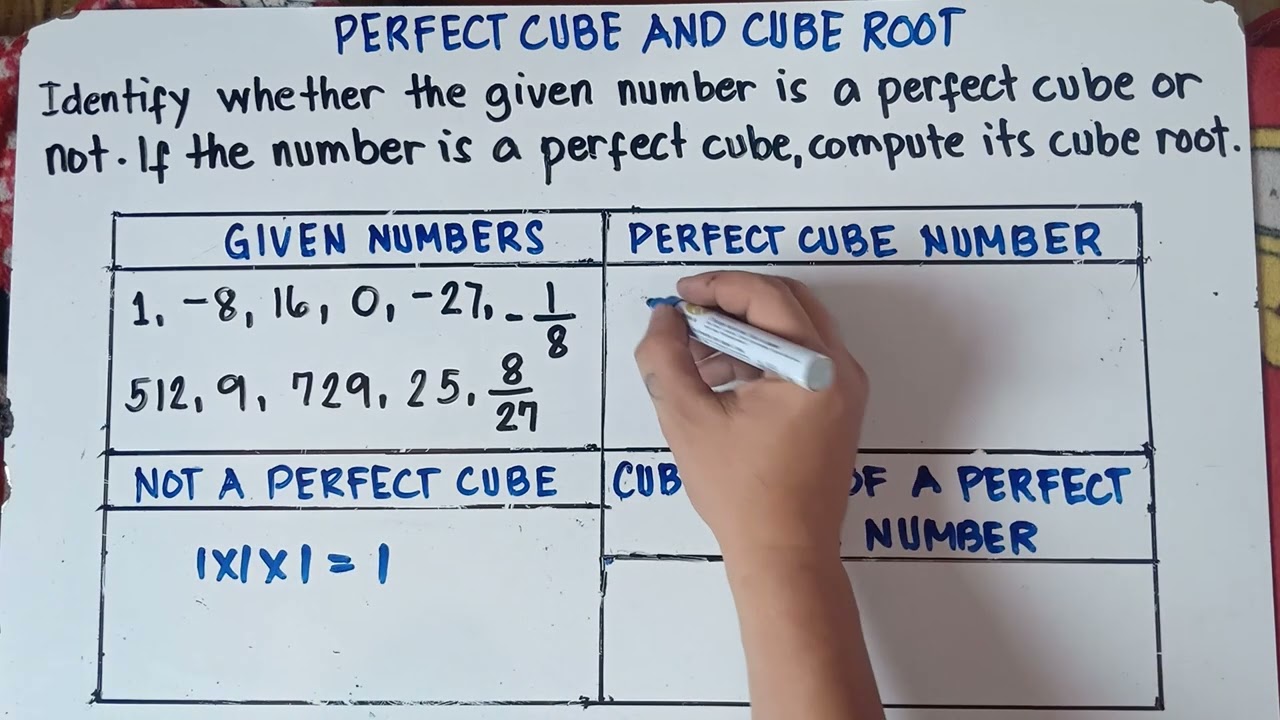 PERFECT CUBE AND CUBE ROOT
Identify whether the given number is a perfect cube or
not. If the number is a perfect cube, compute its cube root.
GIVEN NUMBERS
1, -8, 16, 0, -27, -1/8
512, 9, 729, 25, 8/27
PERFECT CUBE NUMBER
NOT A PERFECT CUBE
1x1x1=1
OF A PERFECT
NUMBER